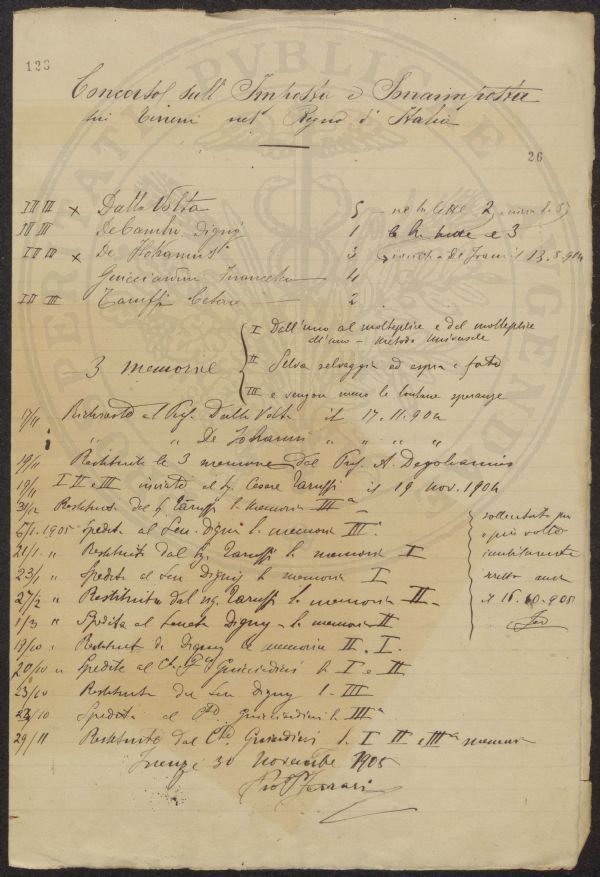 123
Concorso sull' Imposta e Sovrimposta
sui Terreni nel Regno d' Italia
26
I II III x Dalla Volta 5 ha lette 2
I II III De Cambray Digny 1 ha lette e 3
I II III x De Johannis 3 13.5.904
Guicciardini Francesco 4
I II III Taruffi Cesare 2
3 memorie
I Dall'uno al molteplice e dal molteplice
all'uno - metodo universale
II Selva selvaggia ed aspra e forte
III e vengon meno le lontane speranze
17/11 Richiesto al Prof. Dalla Volta il 17.11.904
" " De Johannis " " " "
19/11 Restituite le 3 memorie dal Prof. A. De Johannis
19/11 I II e III inviate al Sg. Cesare Taruffi il 19 nov. 1904
31/12 Restituita dal Sg. Taruffi la memoria IIIa
5/1. 1905 Spedita al Sen. Digny la memoria III
21/1. " Restituita dal Sg. Taruffi la memoria I
23/1 " Spedita al Sen Digny la memoria I
27/2 " Restituita dal sig. Taruffi la memoria II
1/3 " Spedita al Senat. Digny la memoria II
19/10 " Restituit da Digny le memorie II. I.
20/10 " Spedite al Guicciardini la I e II
23/10 Restituita dal Sen Digny la III
23/10 Spedita al Guicciardini la IIIa
29/11 Restituite dal Guicciardini la I II e IIIa memoria
sollecitato per
più volte
inutilmente
il 16.10.905
Firenze 30 Novembre 1905
Prof Ferrari